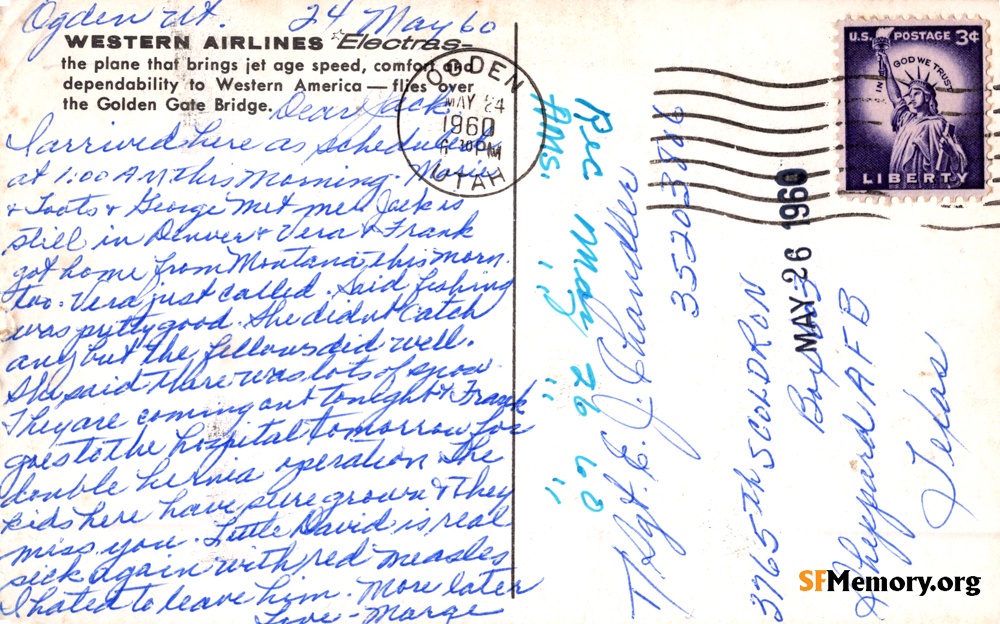 Ogden Ut. 24 May 60
WESTERN AIRLINES Electras—
the plane that brings jet age speed, comfort and
dependability to Western America — flies over
the Golden Gate Bridge.
Dear Jack,
I arrived here as scheduled
at 1:00 AM this morning.
& Toots & George met me. Jack is
still in Denver & Vera & Frank
got home from Montana this morn.
too. Vera just called. Said fishing
was pretty good. She didn't catch
any but the fellows did well.
She said there was lots of snow.
They are coming out tonight & Frank
goes to the hospital tomorrow for
double hernia operation. The
kids here have sure grown & They
miss you. Little David is real
sick again with red measles
I hated to leave him. More later
Love - Marge
OGDEN
MAY 24
1960
PM
UTAH
U.S. POSTAGE 3¢
IN GOD WE TRUST
LIBERTY
Rec May 26 60
Ans. " " "
T/Sgt. E. J. Chandler
35203886
3765th SCOLDRON
Box
MAY 26 1960
Sheppard AFB
Texas
SFMemory.org